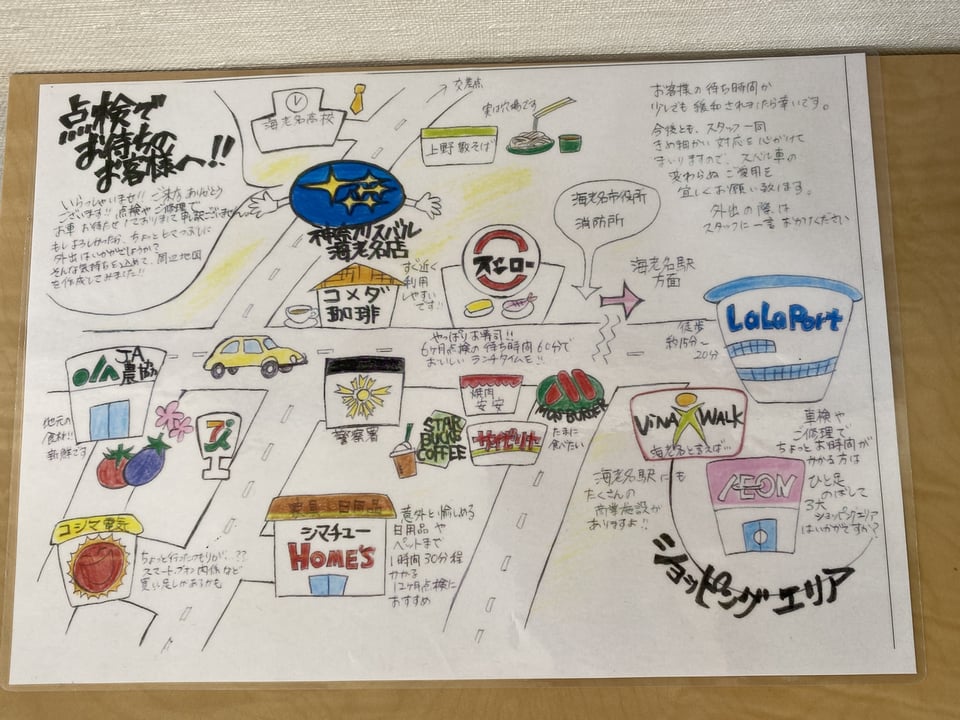 点検で
お待ちの
お客様へ!!
いらっしゃいませ!! ご来店ありがとう
ございます!! 点検やご修理で
お車お待たせしておりまして申訳ございません
もしよろしかったら、ちょっとヒマつぶしに
外出はいかがでしょうか?
そんな気持ちを込めて、周辺地図
を作成してみました!!
海老名高校
交差点
実は穴場です
上野藪そば
神奈川スバル
海老名店
お客様の待ち時間が
少しでも緩和されましたら幸いです。
今後とも、スタッフ一同
きめ細かい対応を心がけて
まいりますので、スバル車の
変わらぬご愛用を
宜しくお願い致します。
外出の際は
スタッフに一言おかけください
海老名市役所
消防所
スシロー
海老名駅
方面
コメダ
珈琲
すぐ近く
利用
しやすい
です!!
LaLaPort
徒歩
約15分~
20分
やっぱりお寿司!!
6ヶ月点検の待ち時間60分で
おいしいランチタイムを!!
JA
農協
地元の
食材!!
新鮮です
7i
警察署
STAR
BUCKS
COFFEE
焼肉
安安
サイゼリヤ
MOS BURGER
たまに
食べたい
ViNA WALK
海老名と言えば…
海老名駅にも
たくさんの
商業施設が
ありますよ!!
AEON
車検や
ご修理で
ちょっとお時間が
かかる方は
ひと足
のばして
3大
ショッピングエリア
はいかがですか?
ショッピングエリア
コジマ電気
ちょっと行ったつもりが、??
スマートフォン関係など
買い足しがあるかも
家具 日用品
シマチュー
HOME'S
意外と愉しめる
日用品や
ペットまで
1時間30分程
かかる
12ヶ月点検に
おすすめ